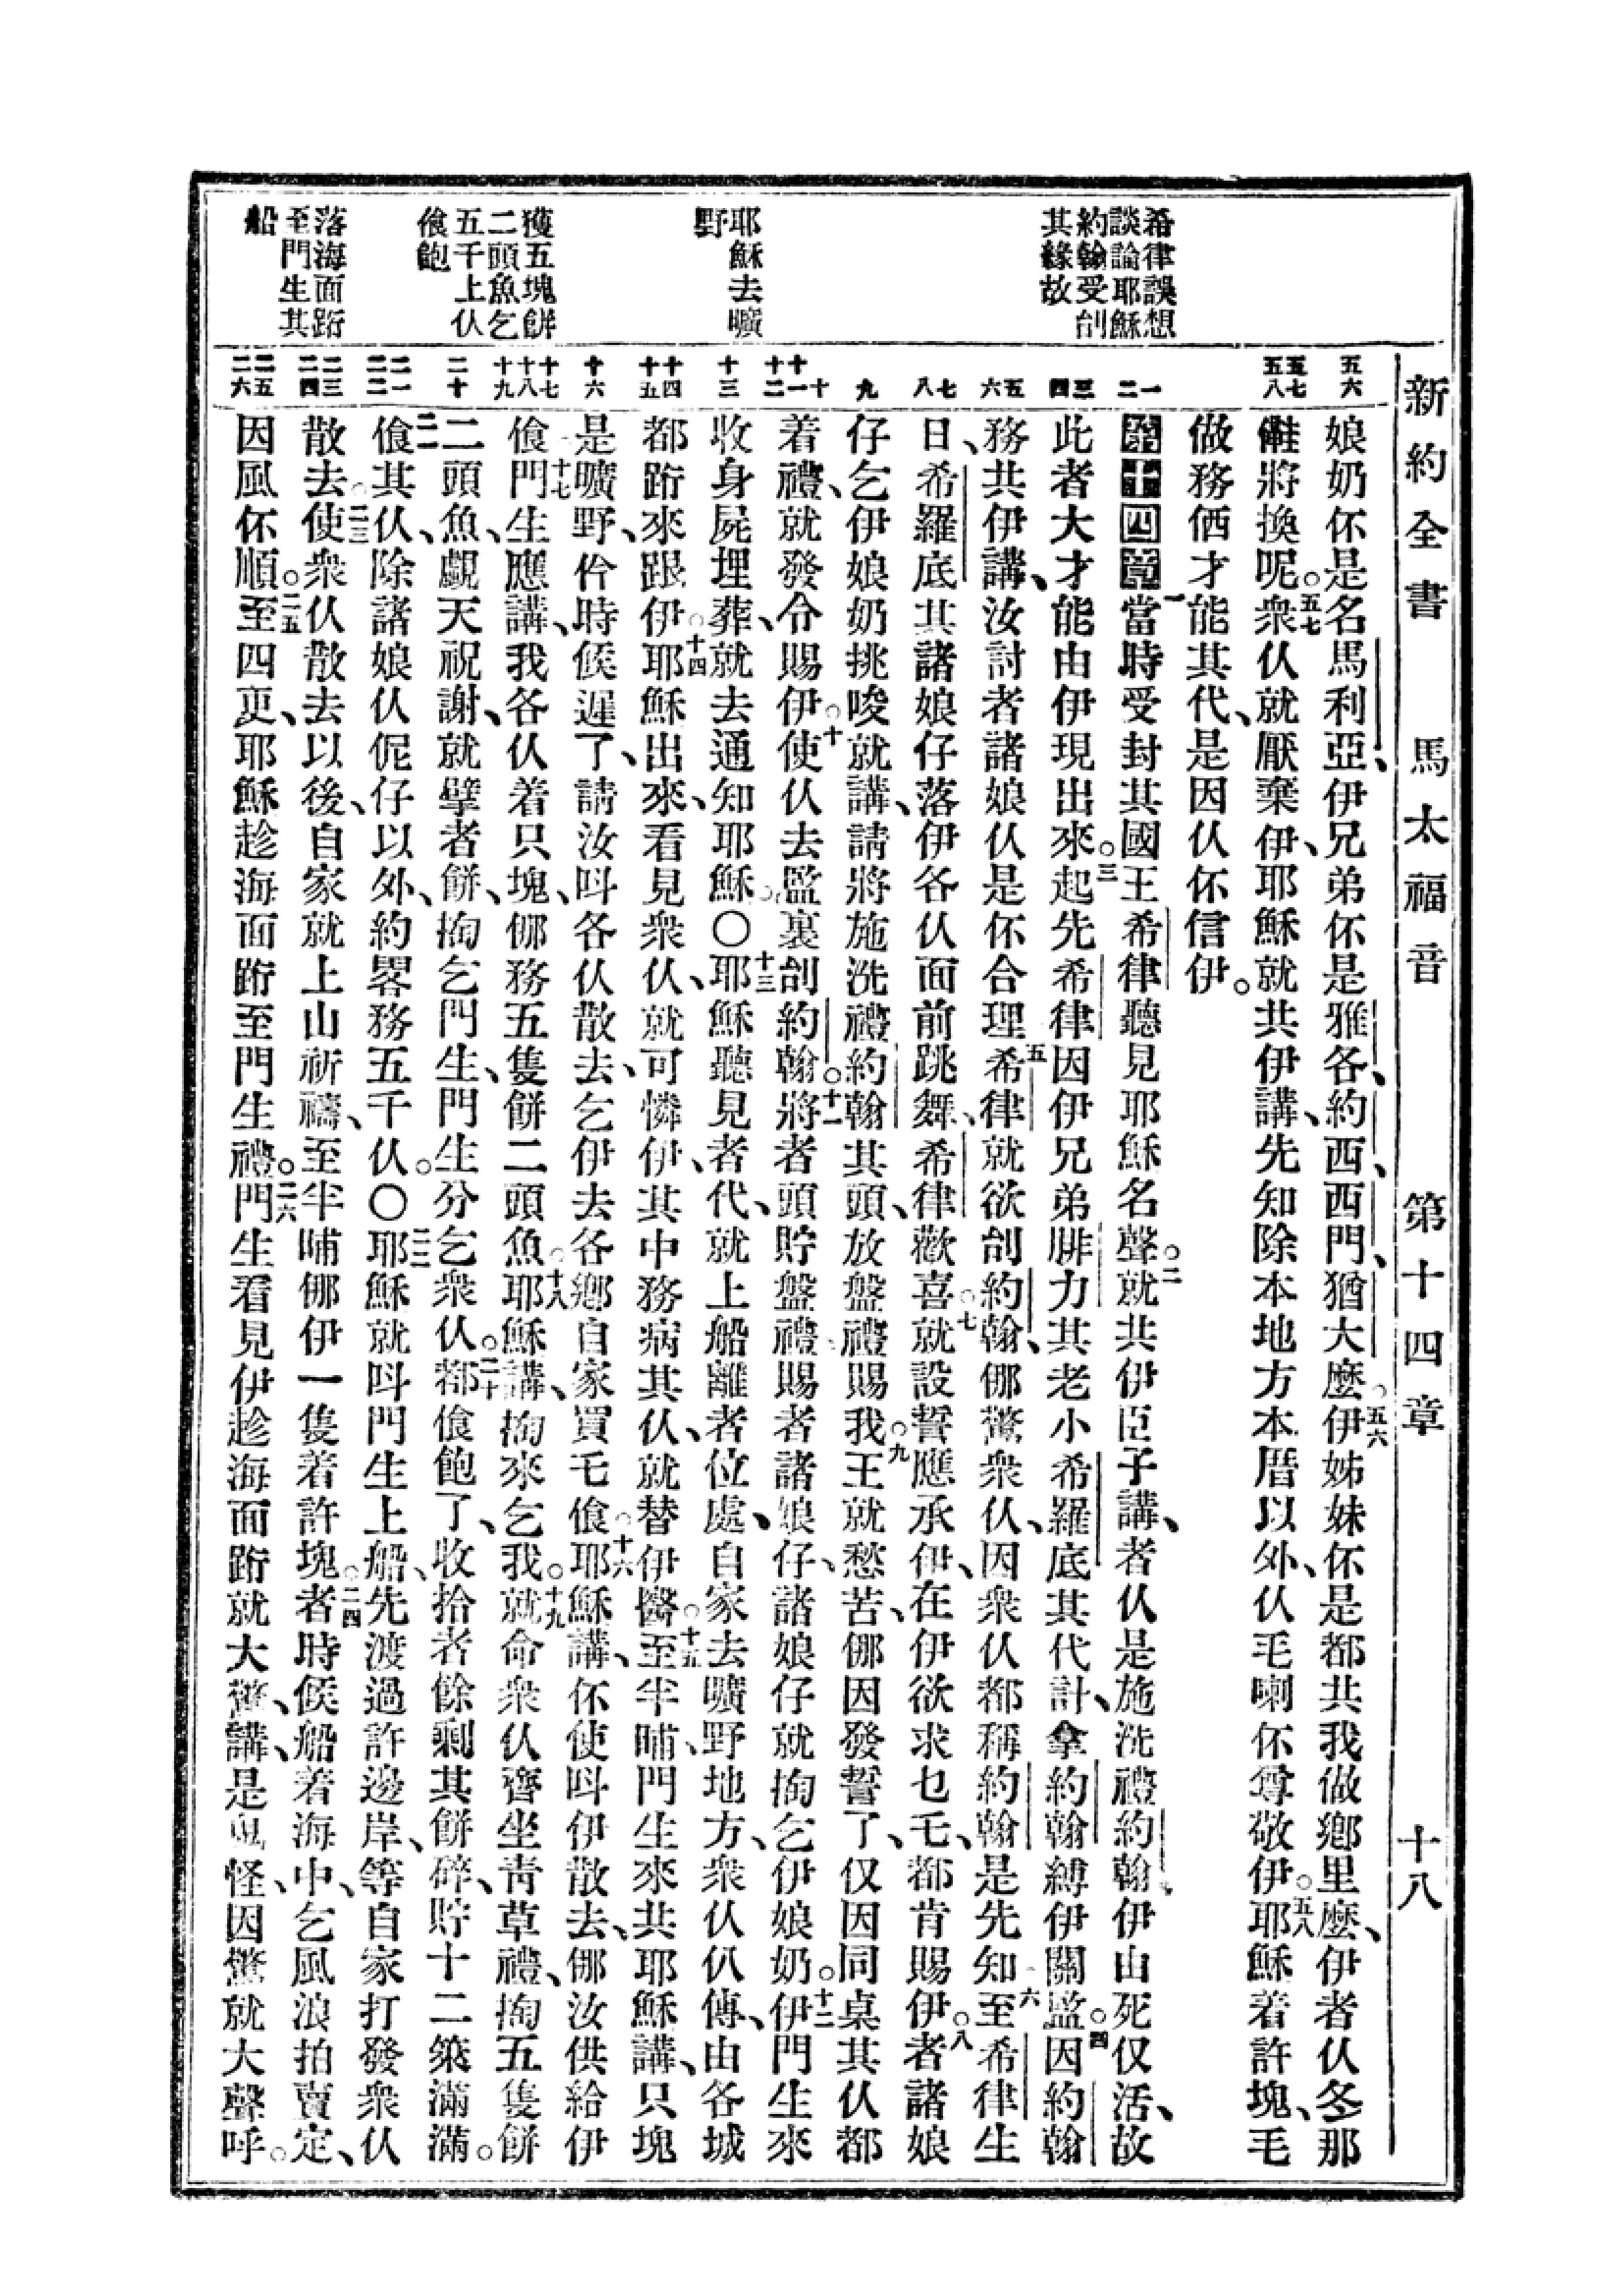 新約全書　馬太福音　第十四章　十八
希律誤想
談論耶穌
約翰受刣
其緣故
耶穌去曠
野
獲五塊餅
二頭魚乞
五千上仈
飧飽
落海面跲
至門生其
船
五六
五七
五八
一
二
三
四
五
六
七
八
九
十
十一
十二
十三
十四
十五
十六
十七
十八
十九
二十
二一
二二
二三
二四
二五
二六
娘奶伓是名馬利亞、伊兄弟伓是雅各、約西、西門、猶大麽。五六伊姊妹伓是都共我做鄉里麽、伊者仈冬那
將換呢。五七衆仈就厭棄伊、耶穌就共伊講、先知除本地方本厝以外、仈毛喇伓尊敬伊。五八耶穌着許塊、毛
做務価才能其代、是因仈伓信伊。
第十四章一當時受封其國王希律聽見耶穌名聲。二就共伊臣子講、者仈是施洗禮約翰、伊由死仅活、故
此者大才能由伊現出來。三起先希律因伊兄弟腓力其老小希羅底其代計、拿約翰縛伊關監。四因約翰
務共伊講、汝討者諸娘仈是伓合理。五希律就欲刣約翰、㑚驚衆仈、因衆仈都稱約翰是先知。六至希律生
日、希羅底其諸娘仔落伊各仈面前跳舞、希律歡喜。七就設誓應承伊、在伊欲求乜毛、都肯賜伊。八者諸娘
仔乞伊娘奶挑唆就講、請將施洗禮約翰其頭、放盤禮賜我。九王就愁苦、㑚因發誓了、仅因同桌其仈都
着禮、就發令賜伊。十使仈去監裏刣約翰。十一將者頭貯盤禮、賜者諸娘仔、諸娘仔就掏乞伊娘奶。十二伊門生來
收身屍埋葬、就去通知耶穌。〇十三耶穌聽見者代、就上船離者位處、自家去曠野地方、衆仈仈傳、由各城
都跲來跟伊。十四耶穌出來、看見衆仈、就可憐伊、其中務病其仈、就替伊醫。十五至半晡、門生來共耶穌講、只塊
是曠野、仱時候遲了、請汝呌各仈散去、乞伊去各鄉自家買乇飧。十六耶穌講、伓使呌伊散去、㑚汝供給伊
飧。十七門生應講、我各仈着只塊、㑚務五隻餅二頭魚。十八耶穌講、掏來乞我。十九就命衆仈齊坐靑草禮、掏五隻餅
二頭魚、覷天祝謝、就擘者餅、掏乞門生、門生分乞衆仈。二十都飧飽了、收拾者餘剩其餅碎、貯十二筞滿滿。
二一飧其仈、除諸娘仈伲仔以外、約畧務五千仈。〇二二耶穌就呌門生上船、先渡過許邊岸、等自家打發衆仈
散去。二三使衆仈散去以後、自家就上山祈禱、至半晡㑚伊一隻着許塊。二四者時候船着海中、乞風浪拍賣定、
因風伓順。二五至四更、耶穌趁海面跲至門生禮。二六門生看見伊趁海面跲就大驚、講、是鬼怪、因驚就大聲呼。